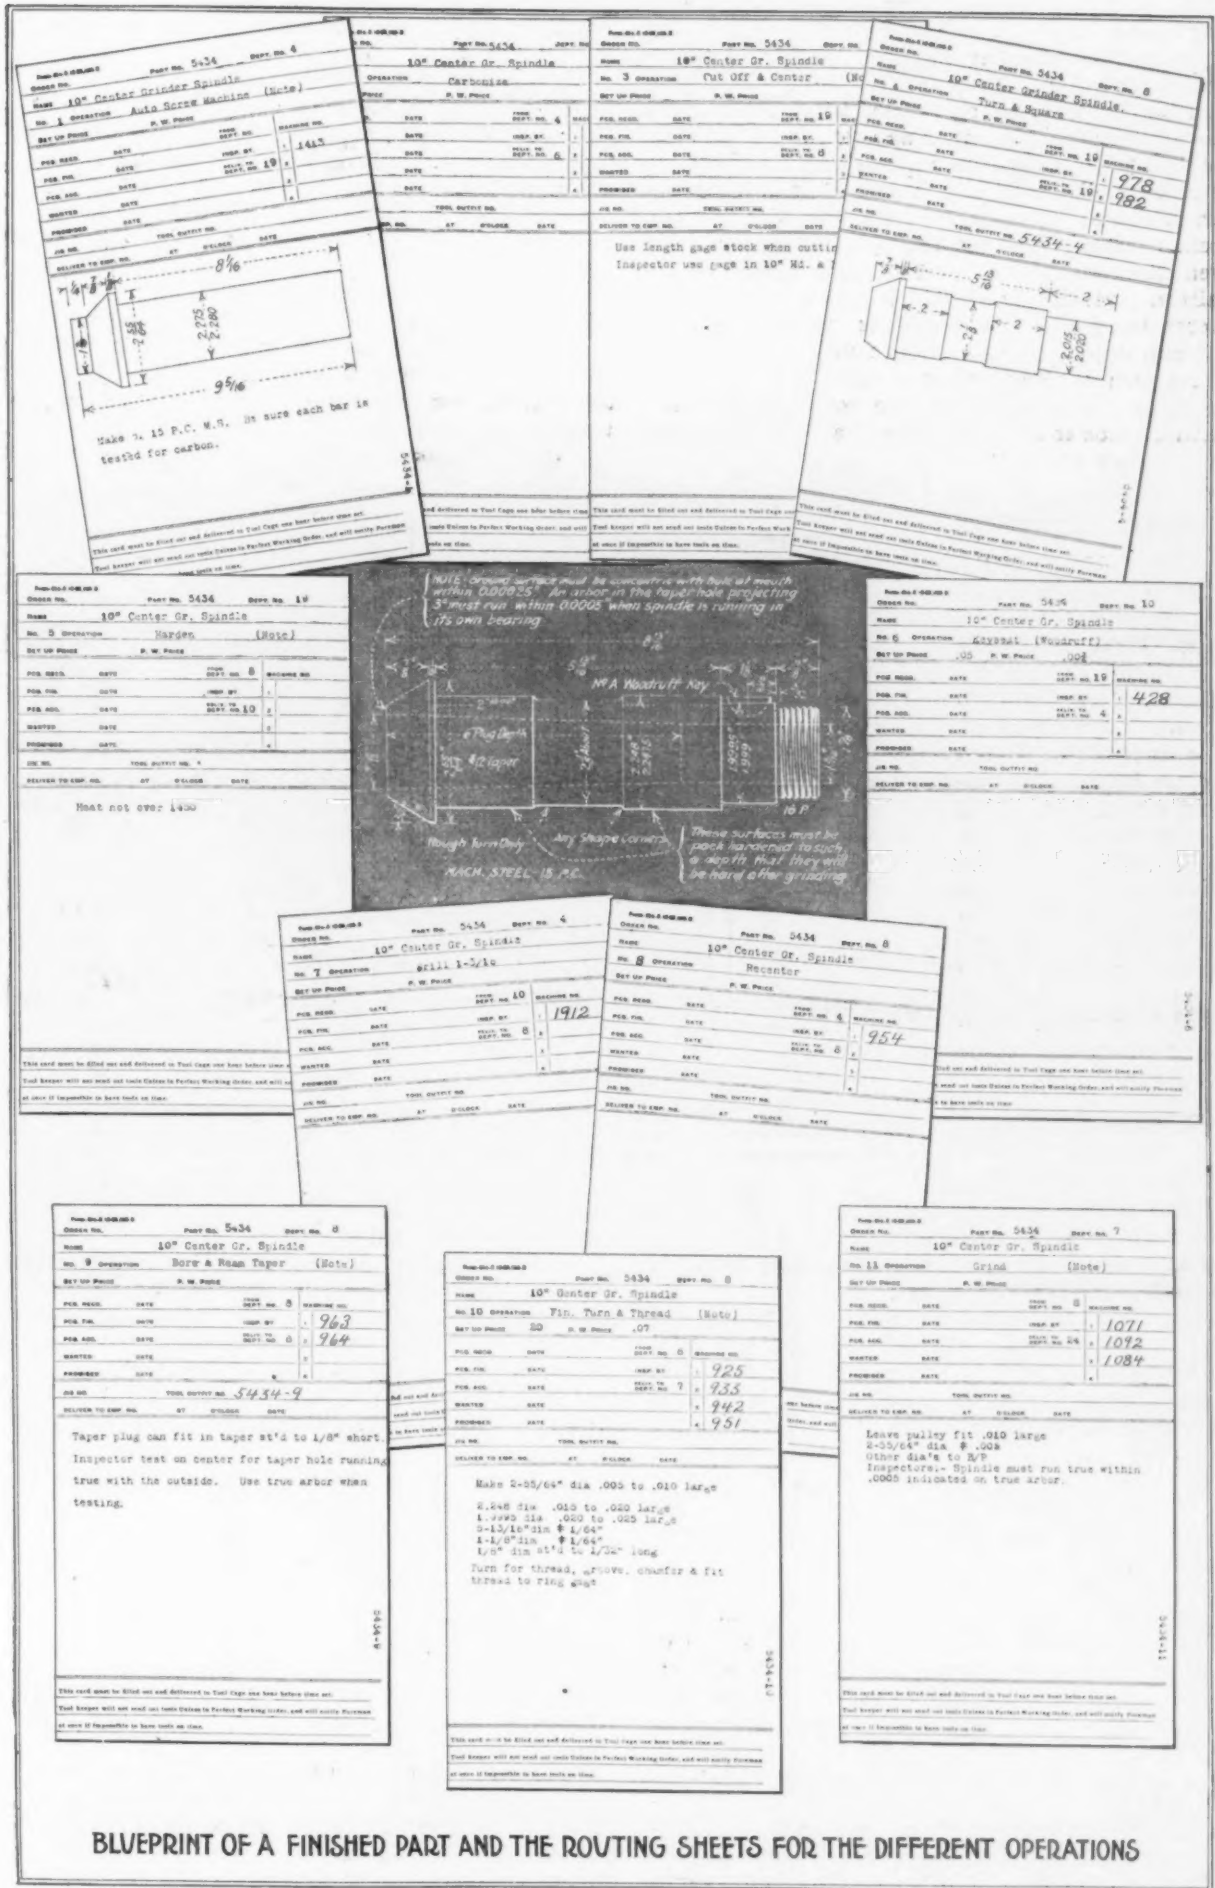 ORDER NO. PART NO. 5434 DEPT. NO. 4
NAME 10" Center Grinder Spindle
NO. 1 OPERATION Auto Screw Machine (Note)
SET UP PRICE P. W. PRICE
PCS. RECD. DATE FROM DEPT. NO. MACHINE NO.
PCS. FIN. DATE INSP. BY. 1 1413
PCS. ACC. DATE DELIV. TO DEPT. NO. 19 2
WANTED DATE
PROMISED DATE
JIG NO. TOOL OUTFIT NO.
DELIVER TO EMP. NO. AT O'CLOCK DATE
8 1/16
2 55/64
2.275
2.280
9 5/16
Make . 15 P.C. M.S. Be sure each bar is
tested for carbon.
This card must be filled out and delivered to Tool Cage one hour before time set.
Tool keeper will not send out tools Unless in Perfect Working Order, and will notify Foreman
at once if impossible to have tools on time.
PART NO. 5434
10" Center Gr. Spindle
OPERATION Carbonize
PRICE P. W. PRICE
DATE FROM DEPT. NO. 4
DATE INSP. BY.
DATE DELIV. TO DEPT. NO. 6
DATE
DATE
TOOL OUTFIT NO.
EMP. NO. AT O'CLOCK DATE
ORDER NO. PART NO. 5434 DEPT. NO.
NAME 10" Center Gr. Spindle
NO. 3 OPERATION Cut Off & Center
SET UP PRICE P. W. PRICE
PCS. RECD. DATE FROM DEPT. NO. 19
PCS. FIN. DATE INSP. BY.
PCS. ACC. DATE DELIV. TO DEPT. NO. 8
WANTED DATE
PROMISED DATE
JIG NO. TOOL OUTFIT NO.
DELIVER TO EMP. NO. AT O'CLOCK DATE
Use length gage stock when cuttin
Inspector use gage in 10" Hd. &
ORDER NO. PART NO. 5434 DEPT. NO. 8
NAME 10" Center Grinder Spindle.
NO. 4 OPERATION Turn & Square
SET UP PRICE P. W. PRICE
PCS. RECD. DATE FROM DEPT. NO. 19 MACHINE NO.
PCS. FIN. DATE INSP. BY. 1 978
PCS. ACC. DATE DELIV. TO DEPT. NO. 19 2 982
WANTED DATE
PROMISED DATE
JIG NO. TOOL OUTFIT NO. 5434-4
DELIVER TO EMP. NO. AT O'CLOCK DATE
5 13/16
2
2
2
2 1/8
2.015
2.020
This card must be filled out and delivered to Tool Cage one hour before time set.
Tool keeper will not send out tools Unless in Perfect Working Order, and will notify Foreman
at once if impossible to have tools on time.
ORDER NO. PART NO. 5434 DEPT. NO. 19
NAME 10" Center Gr. Spindle
NO. 5 OPERATION Harden (Note)
SET UP PRICE P. W. PRICE
PCS. RECD. DATE FROM DEPT. NO. 8 MACHINE NO.
PCS. FIN. DATE INSP. BY 1
PCS. ACC. DATE DELIV. TO DEPT. NO. 10 2
WANTED DATE 3
PROMISED DATE 4
JIG NO. TOOL OUTFIT NO.
DELIVER TO EMP. NO. AT O'CLOCK DATE
Heat not over 1450
This card must be filled out and delivered to Tool Cage one hour before time
Tool keeper will not send out tools Unless in Perfect Working Order, and will
at once if impossible to have tools on time.
NOTE- Ground surface must be concentric with hole at mouth
within 0.00025" An arbor in the taper hole projecting
3" must run within 0.0005 when spindle is running in
its own bearing
No A Woodruff Key
Plug Depth
#12 Taper
2.248"
16 P.
Rough Turn Only
Any Shape Corners
MACH. STEEL .15 P.C.
These surfaces must be
pack hardened to such
a depth that they will
be hard after grinding
ORDER NO. PART NO. 5434 DEPT. NO. 10
NAME 10" Center Gr. Spindle
NO. 6 OPERATION Keyseat (Woodruff)
SET UP PRICE .05 P. W. PRICE
PCS. RECD. DATE FROM DEPT. NO. 19 MACHINE NO.
PCS. FIN. DATE INSP. BY 1 428
PCS. ACC. DATE DELIV. TO DEPT. NO. 4 2
WANTED DATE 3
PROMISED DATE 4
JIG NO. TOOL OUTFIT NO.
DELIVER TO EMP. NO. AT O'CLOCK DATE
ORDER NO. PART NO. 5434 DEPT. NO. 4
NAME 10" Center Gr. Spindle
NO. 7 OPERATION
SET UP PRICE P. W. PRICE
PCS. RECD. DATE FROM DEPT. NO. 10 MACHINE NO.
PCS. FIN. DATE INSP. BY. 1 1912
PCS. ACC. DATE DELIV. TO DEPT. NO. 8 2
WANTED DATE
PROMISED DATE
JIG NO. TOOL OUTFIT NO.
DELIVER TO EMP. NO. AT O'CLOCK DATE
ORDER NO. PART NO. 5434 DEPT. NO. 8
NAME 10" Center Gr. Spindle
NO. 8 OPERATION Recenter
SET UP PRICE P. W. PRICE
PCS. RECD. DATE FROM DEPT. NO. 4 MACHINE NO.
PCS. FIN. DATE INSP. BY. 1 954
PCS. ACC. DATE DELIV. TO DEPT. NO. 8 2
WANTED DATE
PROMISED DATE
JIG NO. TOOL OUTFIT NO.
DELIVER TO EMP. NO. AT O'CLOCK DATE
ORDER NO. PART NO. 5434 DEPT. NO. 8
NAME 10" Center Gr. Spindle
NO. 9 OPERATION Bore & Ream Taper (Note)
SET UP PRICE P. W. PRICE
PCS. RECD. DATE FROM DEPT. NO. 8 MACHINE NO.
PCS. FIN. DATE INSP. BY 1 963
PCS. ACC. DATE DELIV. TO DEPT. NO. 8 2 964
WANTED DATE
PROMISED DATE
JIG NO. TOOL OUTFIT NO. 5434-9
DELIVER TO EMP. NO. AT O'CLOCK DATE
Taper plug can fit in taper st'd to 1/8" short.
Inspector test on center for taper hole running
true with the outside. Use true arbor when
testing.
5434-9
This card must be filled out and delivered to Tool Cage one hour before time set.
Tool keeper will not send out tools Unless in Perfect Working Order, and will notify Foreman
at once if impossible to have tools on time.
ORDER NO. PART NO. 5434 DEPT. NO. 8
NAME 10" Center Gr. Spindle
NO. 10 OPERATION Fin. Turn & Thread (Note)
SET UP PRICE 20 P. W. PRICE .07
PCS. RECD. DATE FROM DEPT. NO. 8 MACHINE NO.
PCS. FIN. DATE INSP. BY 1 925
PCS. ACC. DATE DELIV. TO DEPT. NO. 7 2 935
WANTED DATE 3 942
PROMISED DATE 4 951
JIG NO. TOOL OUTFIT NO.
DELIVER TO EMP. NO. AT O'CLOCK DATE
Make 2-55/64" dia .005 to .010 large
2.248 dia .015 to .020 large
1.9995 dia .020 to .025 large
5-13/16" dim ± 1/64"
1-1/8" dim ± 1/64"
1/8" dim st'd to 1/32" long
Turn for thread, groove, chamfer & fit
thread to ring
5434-10
This card must be filled out and delivered to Tool Cage one hour before time set.
Tool keeper will not send out tools Unless in Perfect Working Order, and will notify Foreman
at once if impossible to have tools on time.
ORDER NO. PART NO. 5434 DEPT. NO. 7
NAME 10" Center Gr. Spindle
NO. 11 OPERATION Grind (Note)
SET UP PRICE P. W. PRICE
PCS. RECD. DATE FROM DEPT. NO. 8 MACHINE NO.
PCS. FIN. DATE INSP. BY 1 1071
PCS. ACC. DATE DELIV. TO DEPT. NO. 24 2 1092
WANTED DATE 3 1084
PROMISED DATE
JIG NO. TOOL OUTFIT NO.
DELIVER TO EMP. NO. AT O'CLOCK DATE
Leave pulley fit .010 large
2-55/64" dia ± .002
Other dia's to B/P
Inspectors.- Spindle must run true within
.0005 indicated on true arbor.
5434-11
This card must be filled out and delivered to Tool Cage one hour before time set.
Tool keeper will not send out tools Unless in Perfect Working Order, and will notify Foreman
at once if impossible to have tools on time.
BLUEPRINT OF A FINISHED PART AND THE ROUTING SHEETS FOR THE DIFFERENT OPERATIONS